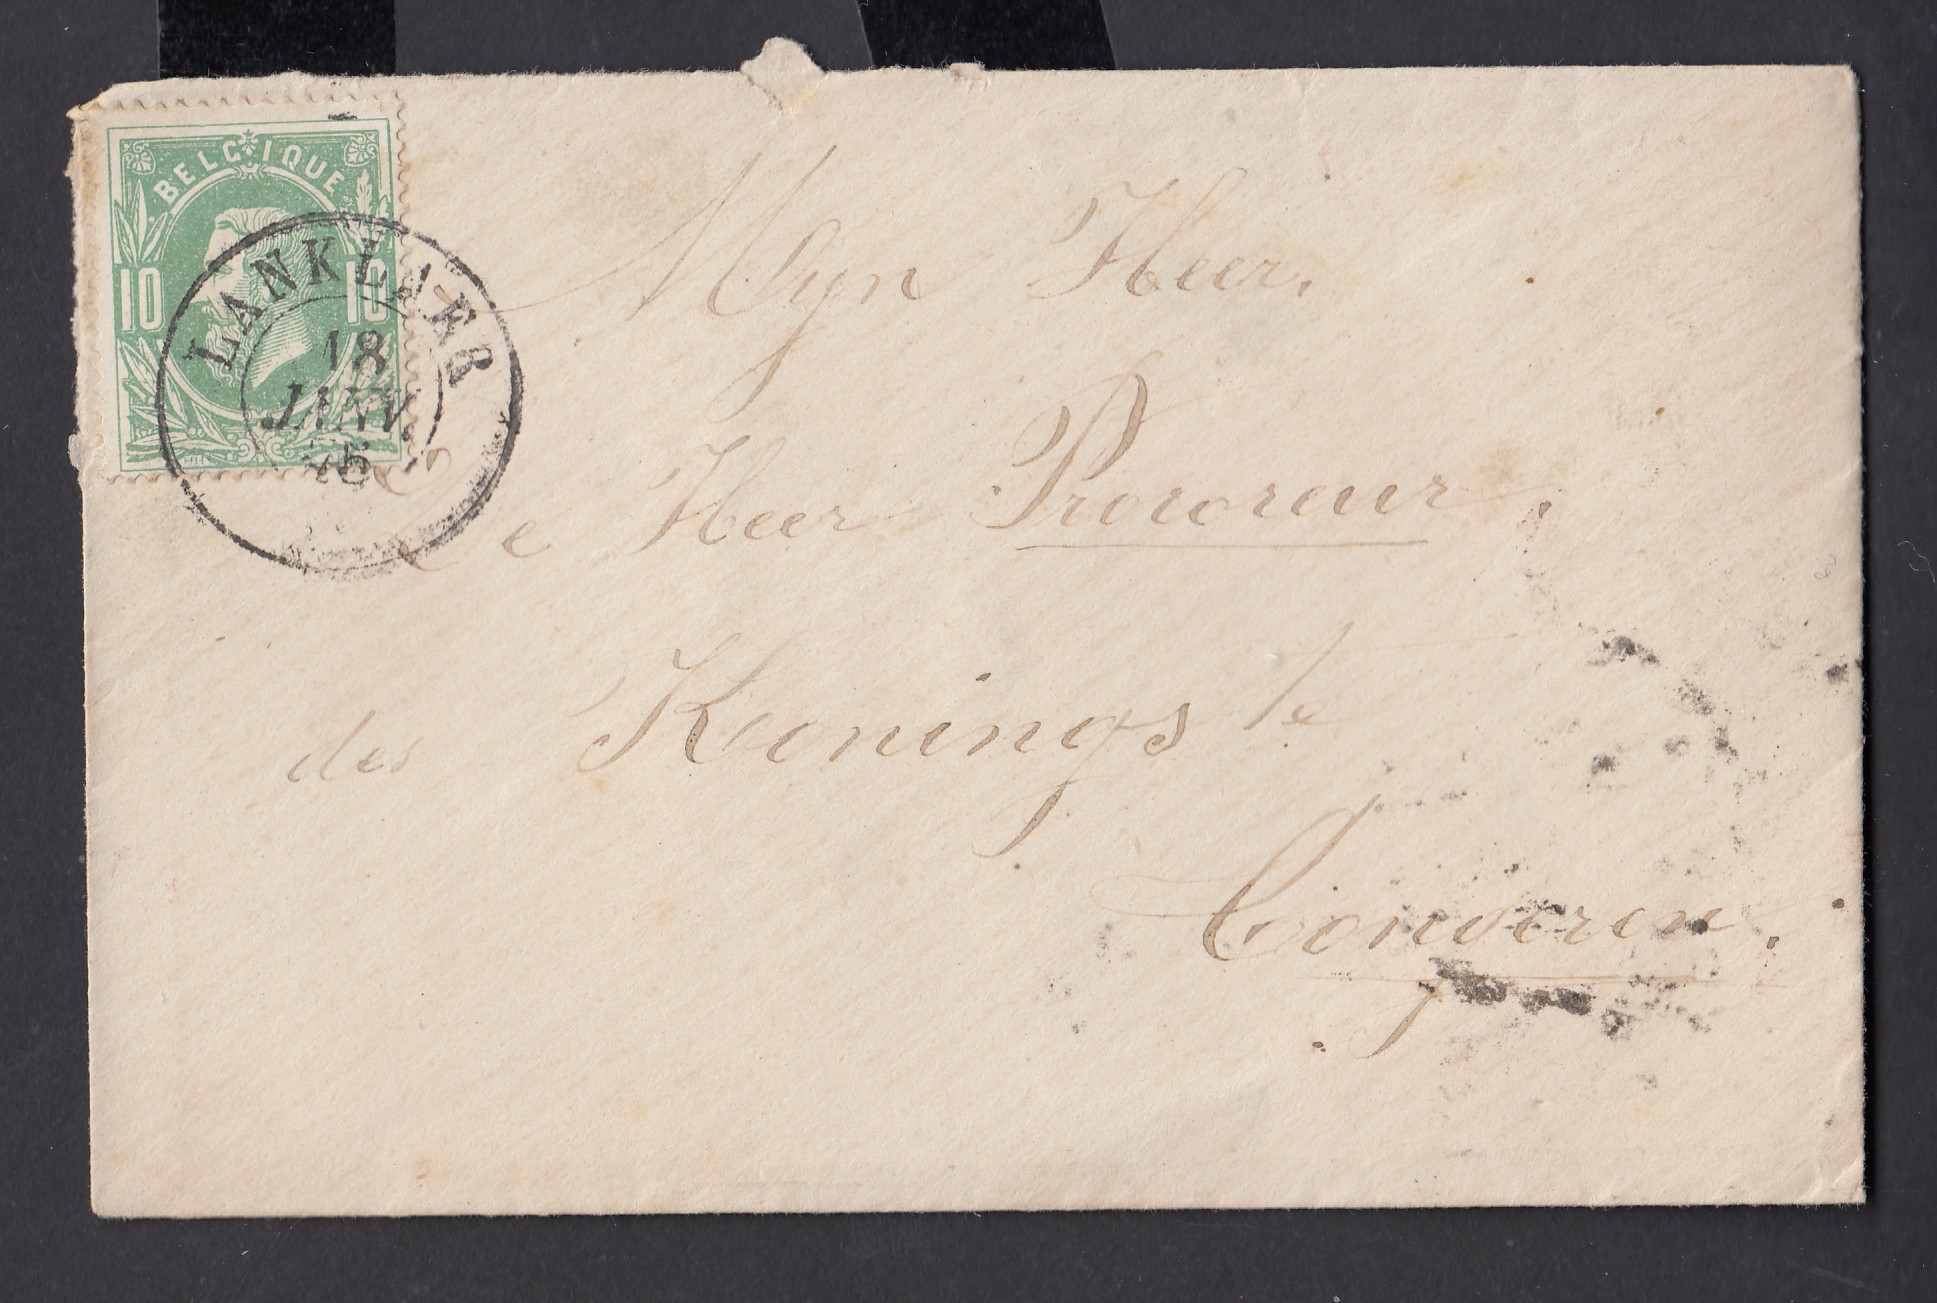 BELGIQUE
10 10
LANKLAER
18
JANV.
Mijn Heer.
De Heer Procoreur.
des Konings te
Tongeren.